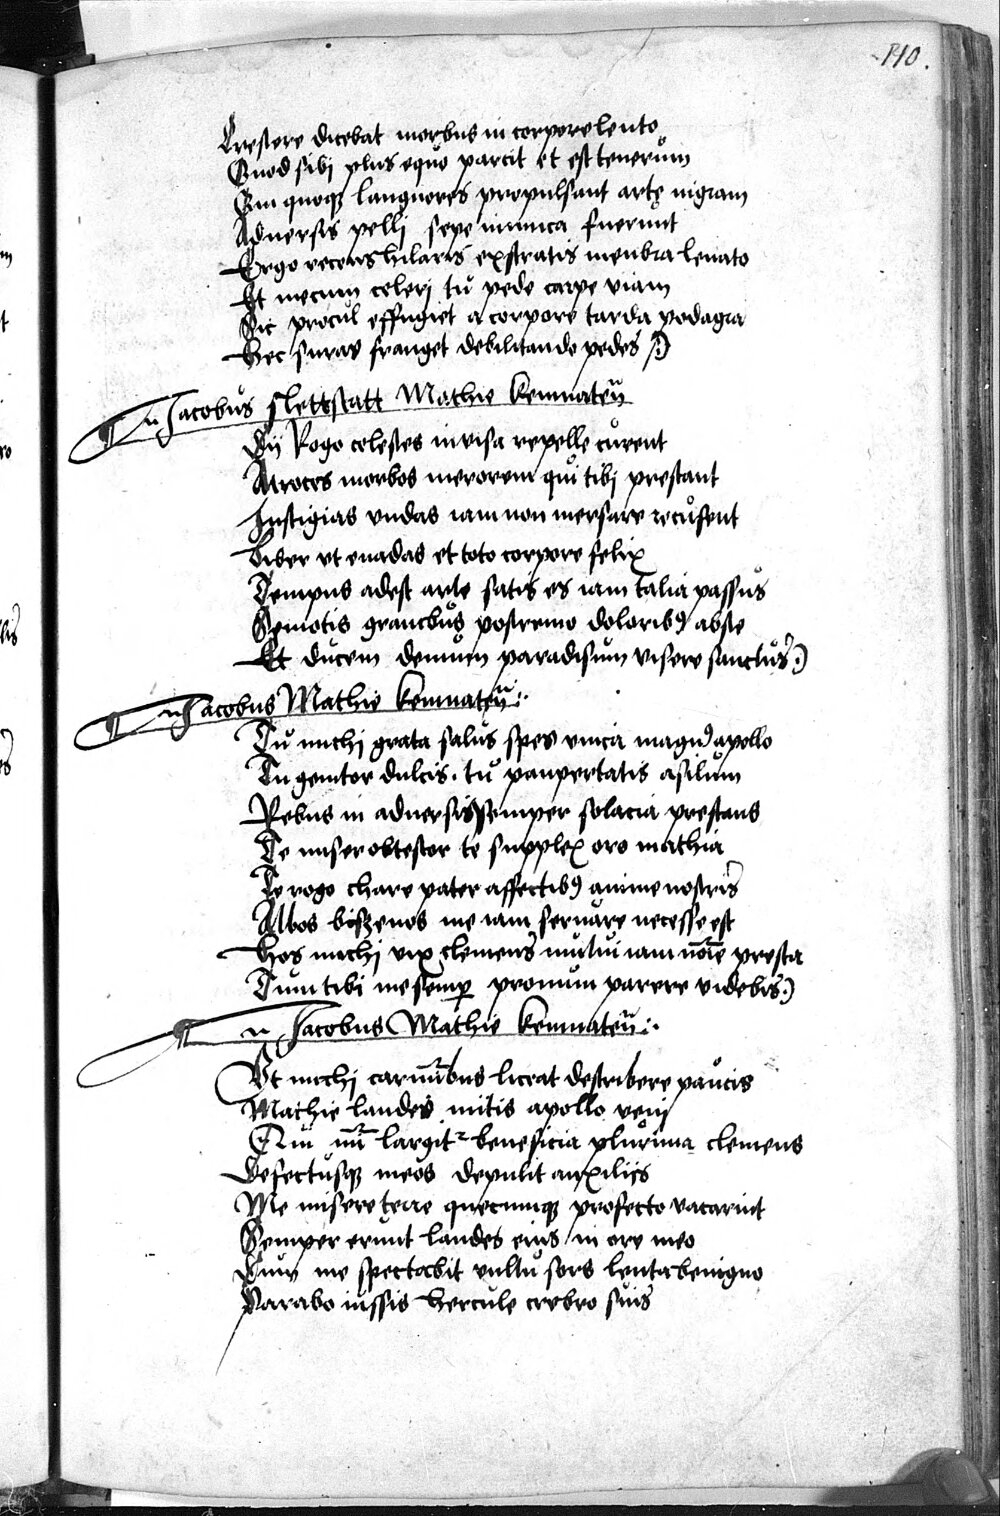 110.
Crescere dicebat morbus in corpore lento
Quod sibi plus equo parcit et est tenerum
Qui quoque languores propulsant arte nigram
Adversis pelli sepe inimica fuerunt
Ergo recens hilaris exstratis menbra levato
Et mecum celeri tu pede carpe viam
Sic procul effugiet a corpore tarda podagra
Hec suras franget debilitando pedes
Jacobus sletstatt Mathie kemnaten
Dij Rogo celestes invisa repelle curent
Atroces morbos merorem qui tibi prestant
Instigias undas iam non mersare recusent
Liber ut evadas et toto corpore felix
Tempus adest arte satis es iam talia passus
Semotis gravibus postremo doloribus abste
Et ducem demum paradisum visere sanctus
Jacobus Mathie kemnaten
Tu michi grata salus spes unica magnus apollo
Tu genitor dulcis. tu paupertatis asilum
Rebus in adversis semper solacia prestans
Te miser obtestor te supplex oro mathia
Te rogo chare pater affectibus anime nostris
Albos biszenos me iam servare necesse est
Hos michi vix clemens mutui iam nomine presta
Tum tibi me semper pronum parere videbis
Jacobus Mathie kemnaten
Ut michi carminibus liceat describere paucis
Mathie laudes mitis apollo veni
Qui largitur beneficia plurima clemens
Defectusque meos depulit auxilijs
Me misere terre quecumque profecto vacarint
Semper erunt laudes eius in ore meo
Cum me spectabit vultu sors lenta benigno
Parabo iussis hercule crebro suis